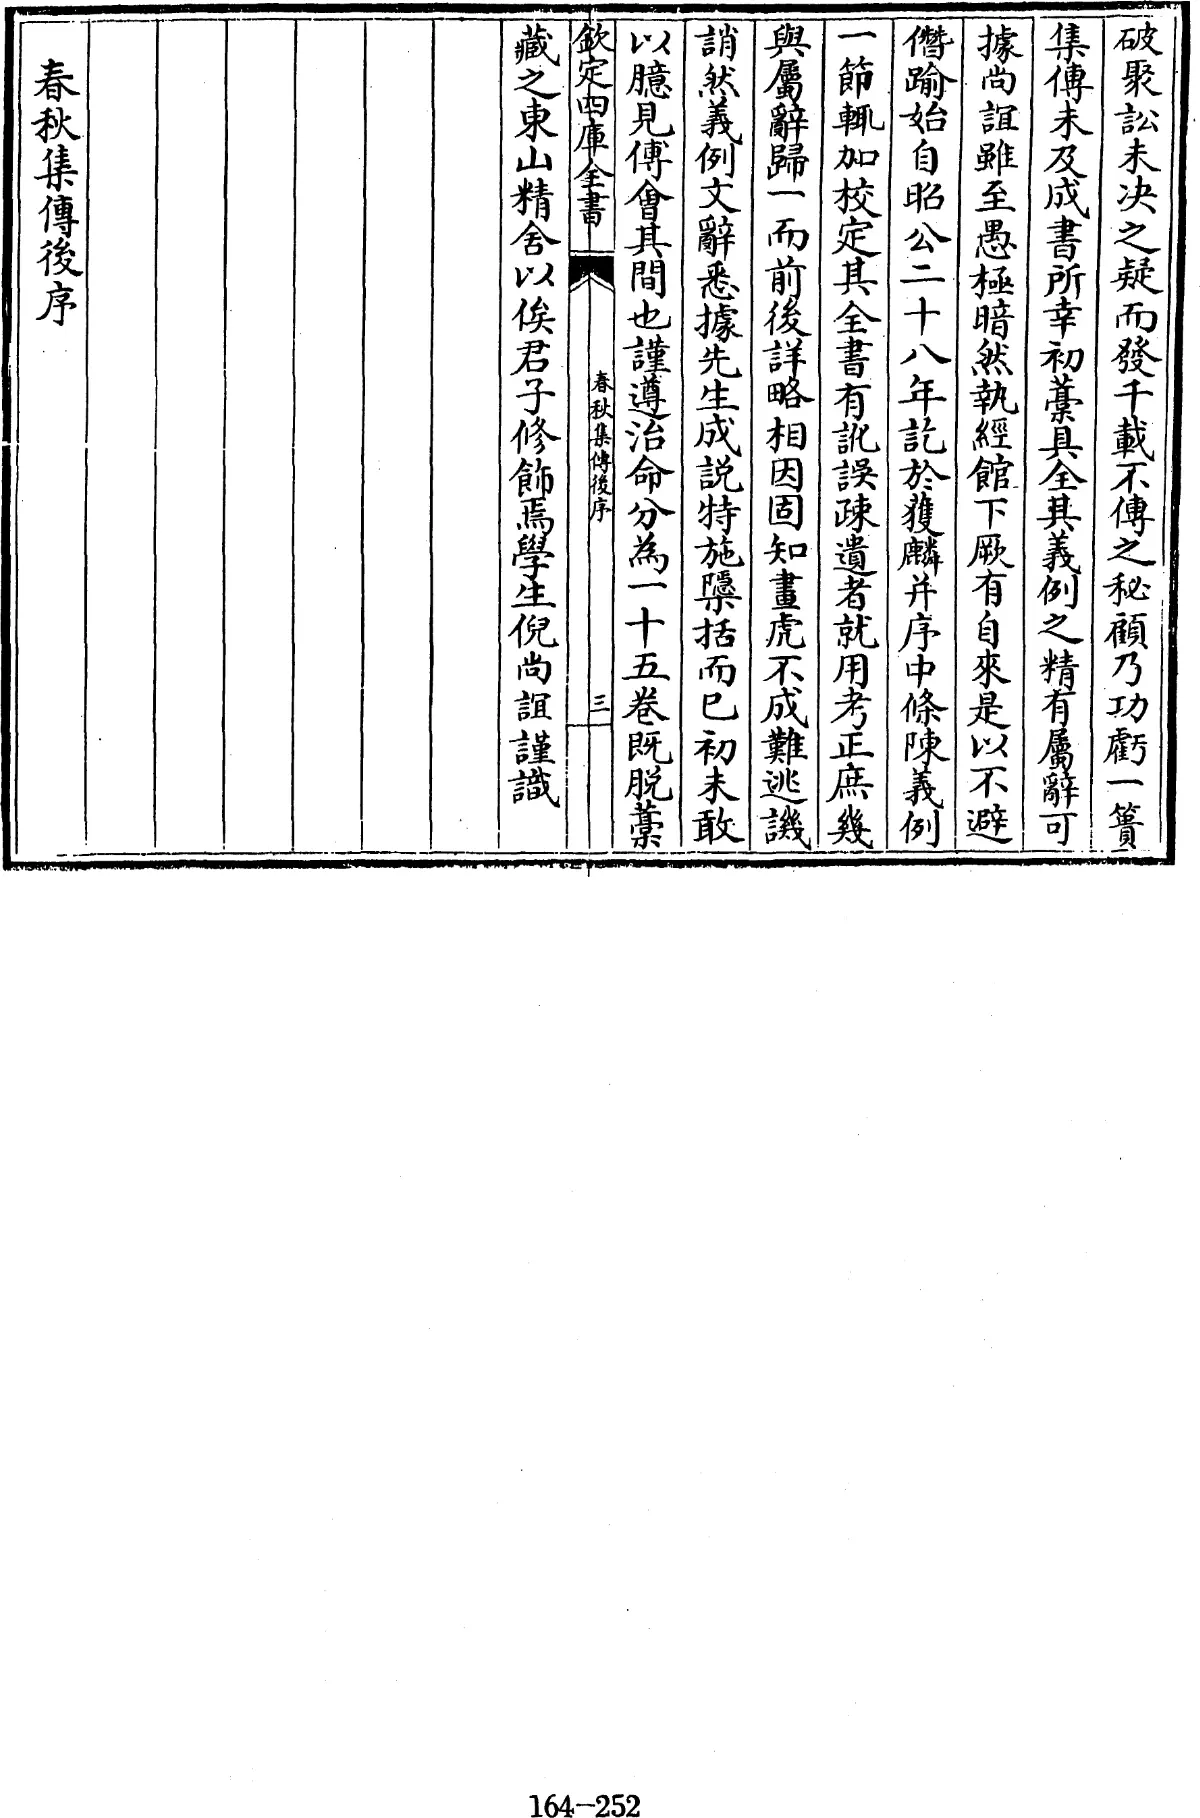 破聚訟未決之疑而發千載不傳之秘顧乃功虧一簣
集傳未及成書所幸初藁具全其義例之精有屬辭可
據尚誼雖至愚極暗然執經館下厥有自來是以不避
僭踰始自昭公二十八年訖於獲麟并序中條陳義例
一節輒加校定其全書有訛誤疎遺者就用考正庶幾
與屬辭歸一而前後詳略相因固知畫虎不成難逃譏
誚然義例文辭悉據先生成説特施檃括而已初未敢
以臆見傅會其間也謹遵治命分為一十五卷既脱藁
欽定四庫全書
春秋集傳後序
三
藏之東山精舍以俟君子修飾焉學生倪尚誼謹識
春秋集傳後序
164-252